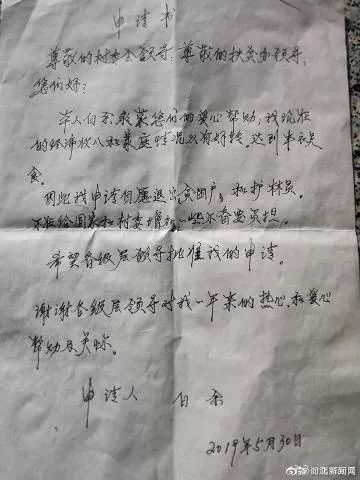 申请书
尊敬的村委会领导：尊敬的扶贫办领导，
您们好：
本人白余承蒙您们的爱心帮助，我现在
的经济收入和家庭情况以有好转。达到丰衣足
食。
因此我申请自愿退出贫困户，和护林员。
不在给国家和村委增加一些不必要负担。
希望各级层领导批准我的申请。
谢谢各级层领导对我一年来的热心和爱心
帮助及关怀。
申请人 白余
2019年5月30日
@河北新闻网